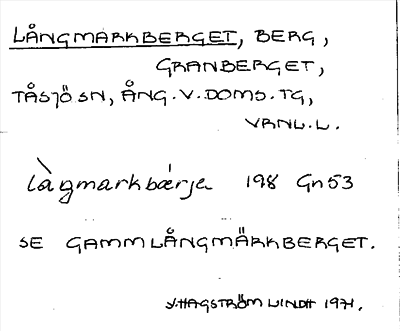 LÅNGMARKBERGET, BERG,
GRANBERGET,
TÅSJÖ SN, ÅNG. V. DOMS. TG,
VRNL. L.
làgmarkbǽrje 198 Gn53
SE GAMMLÅNGMÄRKBERGET.
HAGSTRÖM LINDH 1971.